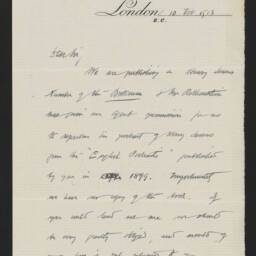 London, 10 Feb 1913
E.C.
Dear Sir,
We are publishing a Henry James
Number of the "Bookman" & Mr Rothenstein
has given our agent permission for us
to reproduce his portrait of Henry James
from his "English Portraits" published
by you in 1899. Unfortunately
we have no copy of the book. If
you could lend us one we should
be very greatly obliged, and would